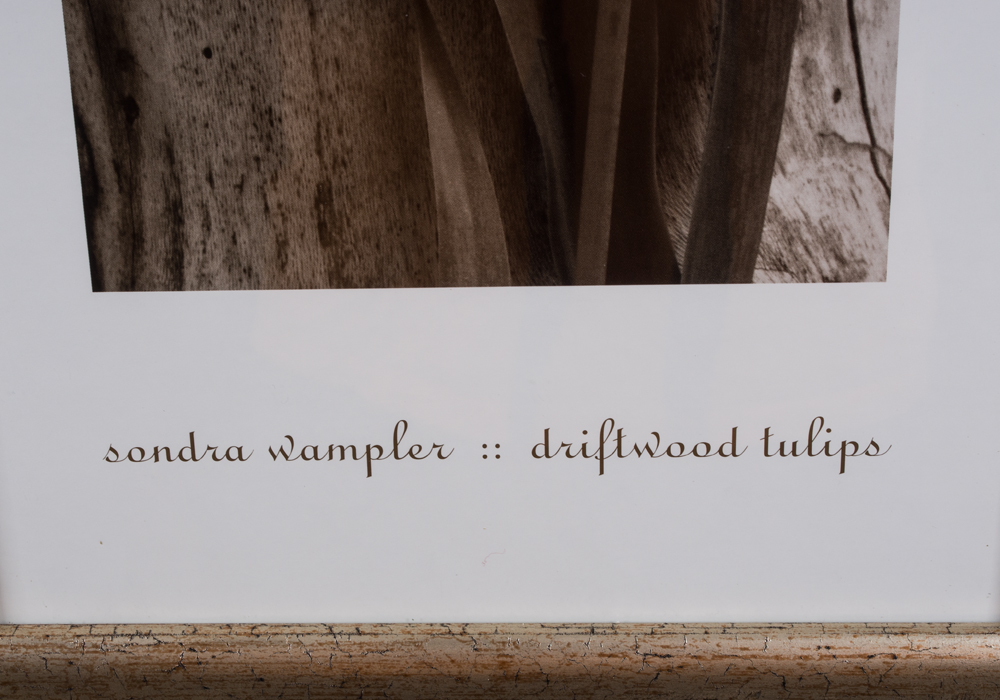 sondra wampler :: driftwood tulips